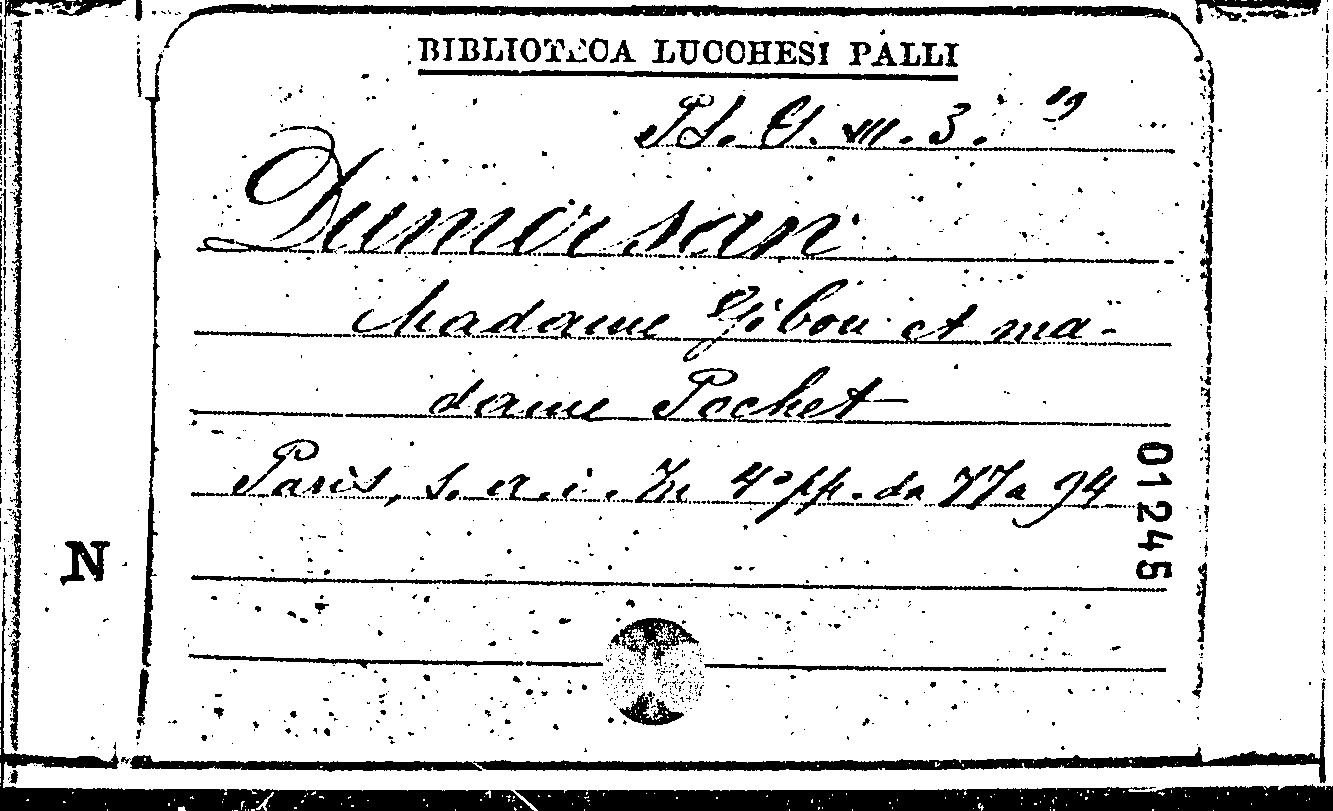 BIBLIOTECA LUCCHESI PALLI
Dumersan
Madame Gibou et ma-
dame Pochet
Paris, s. a. i. In 4° pp. da 77 a 94
01245
N